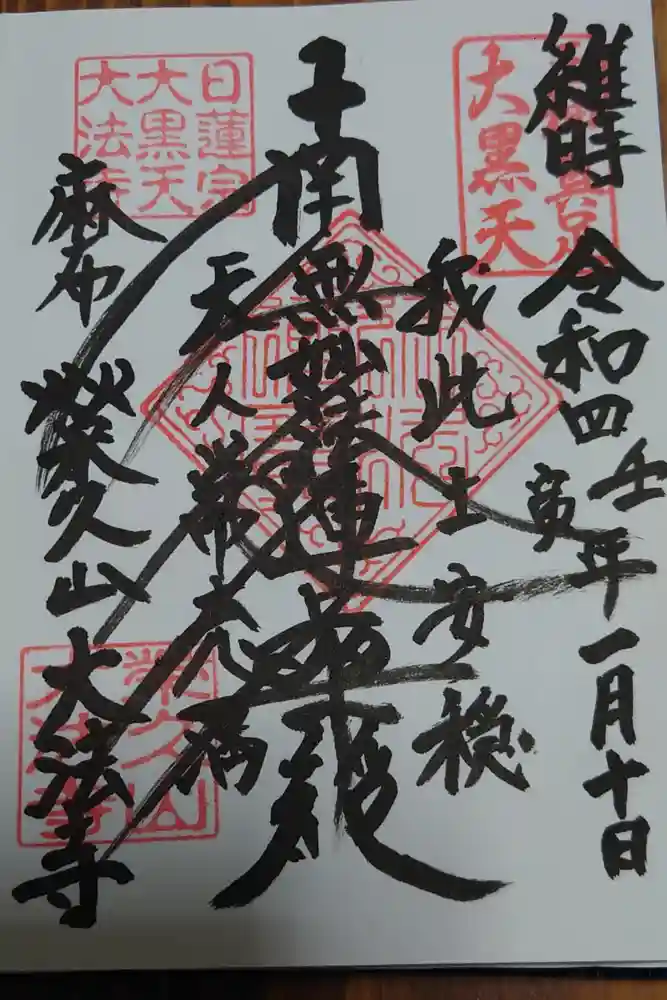 維時 令和四壬寅年一月十日
大黒天
我此土安穏
南無妙法蓮華経
天人常充満
日蓮宗
大黒天
大法寺
麻布 榮久山大法寺
榮久山
大法寺